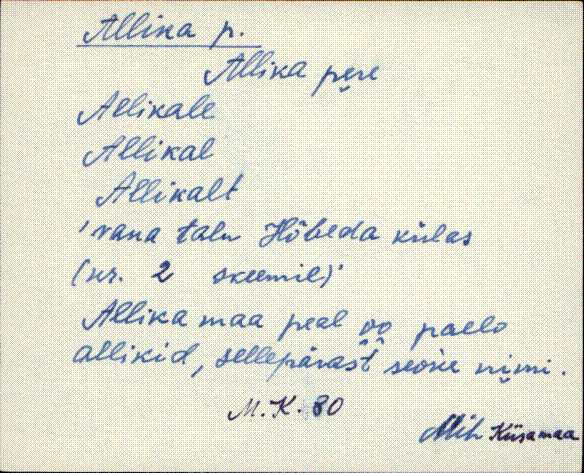 Allika p.
Allika pere
Allikale
Allikal
Allikalt
'vana talu Hõbeda külas
(nr. 2 skeemil)'
Allika maa peal oo paelo
allikid, sellepärast seoke nimi.
M.K. 80
Mih Kiisamaa